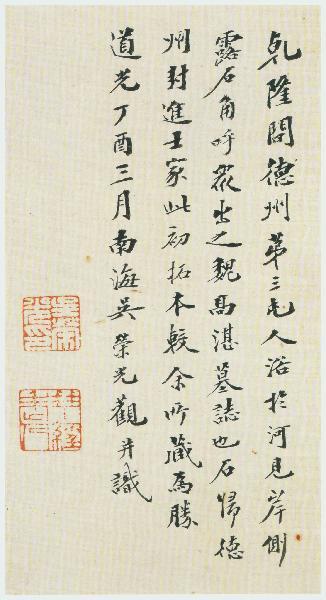 乹隆間德州第三屯人浴於河見岸側
露石角呼衆出之魏髙湛墓誌也石歸德
州封進士家此初拓本較余所藏爲勝
道光丁酉三月南海吳榮光觀并識